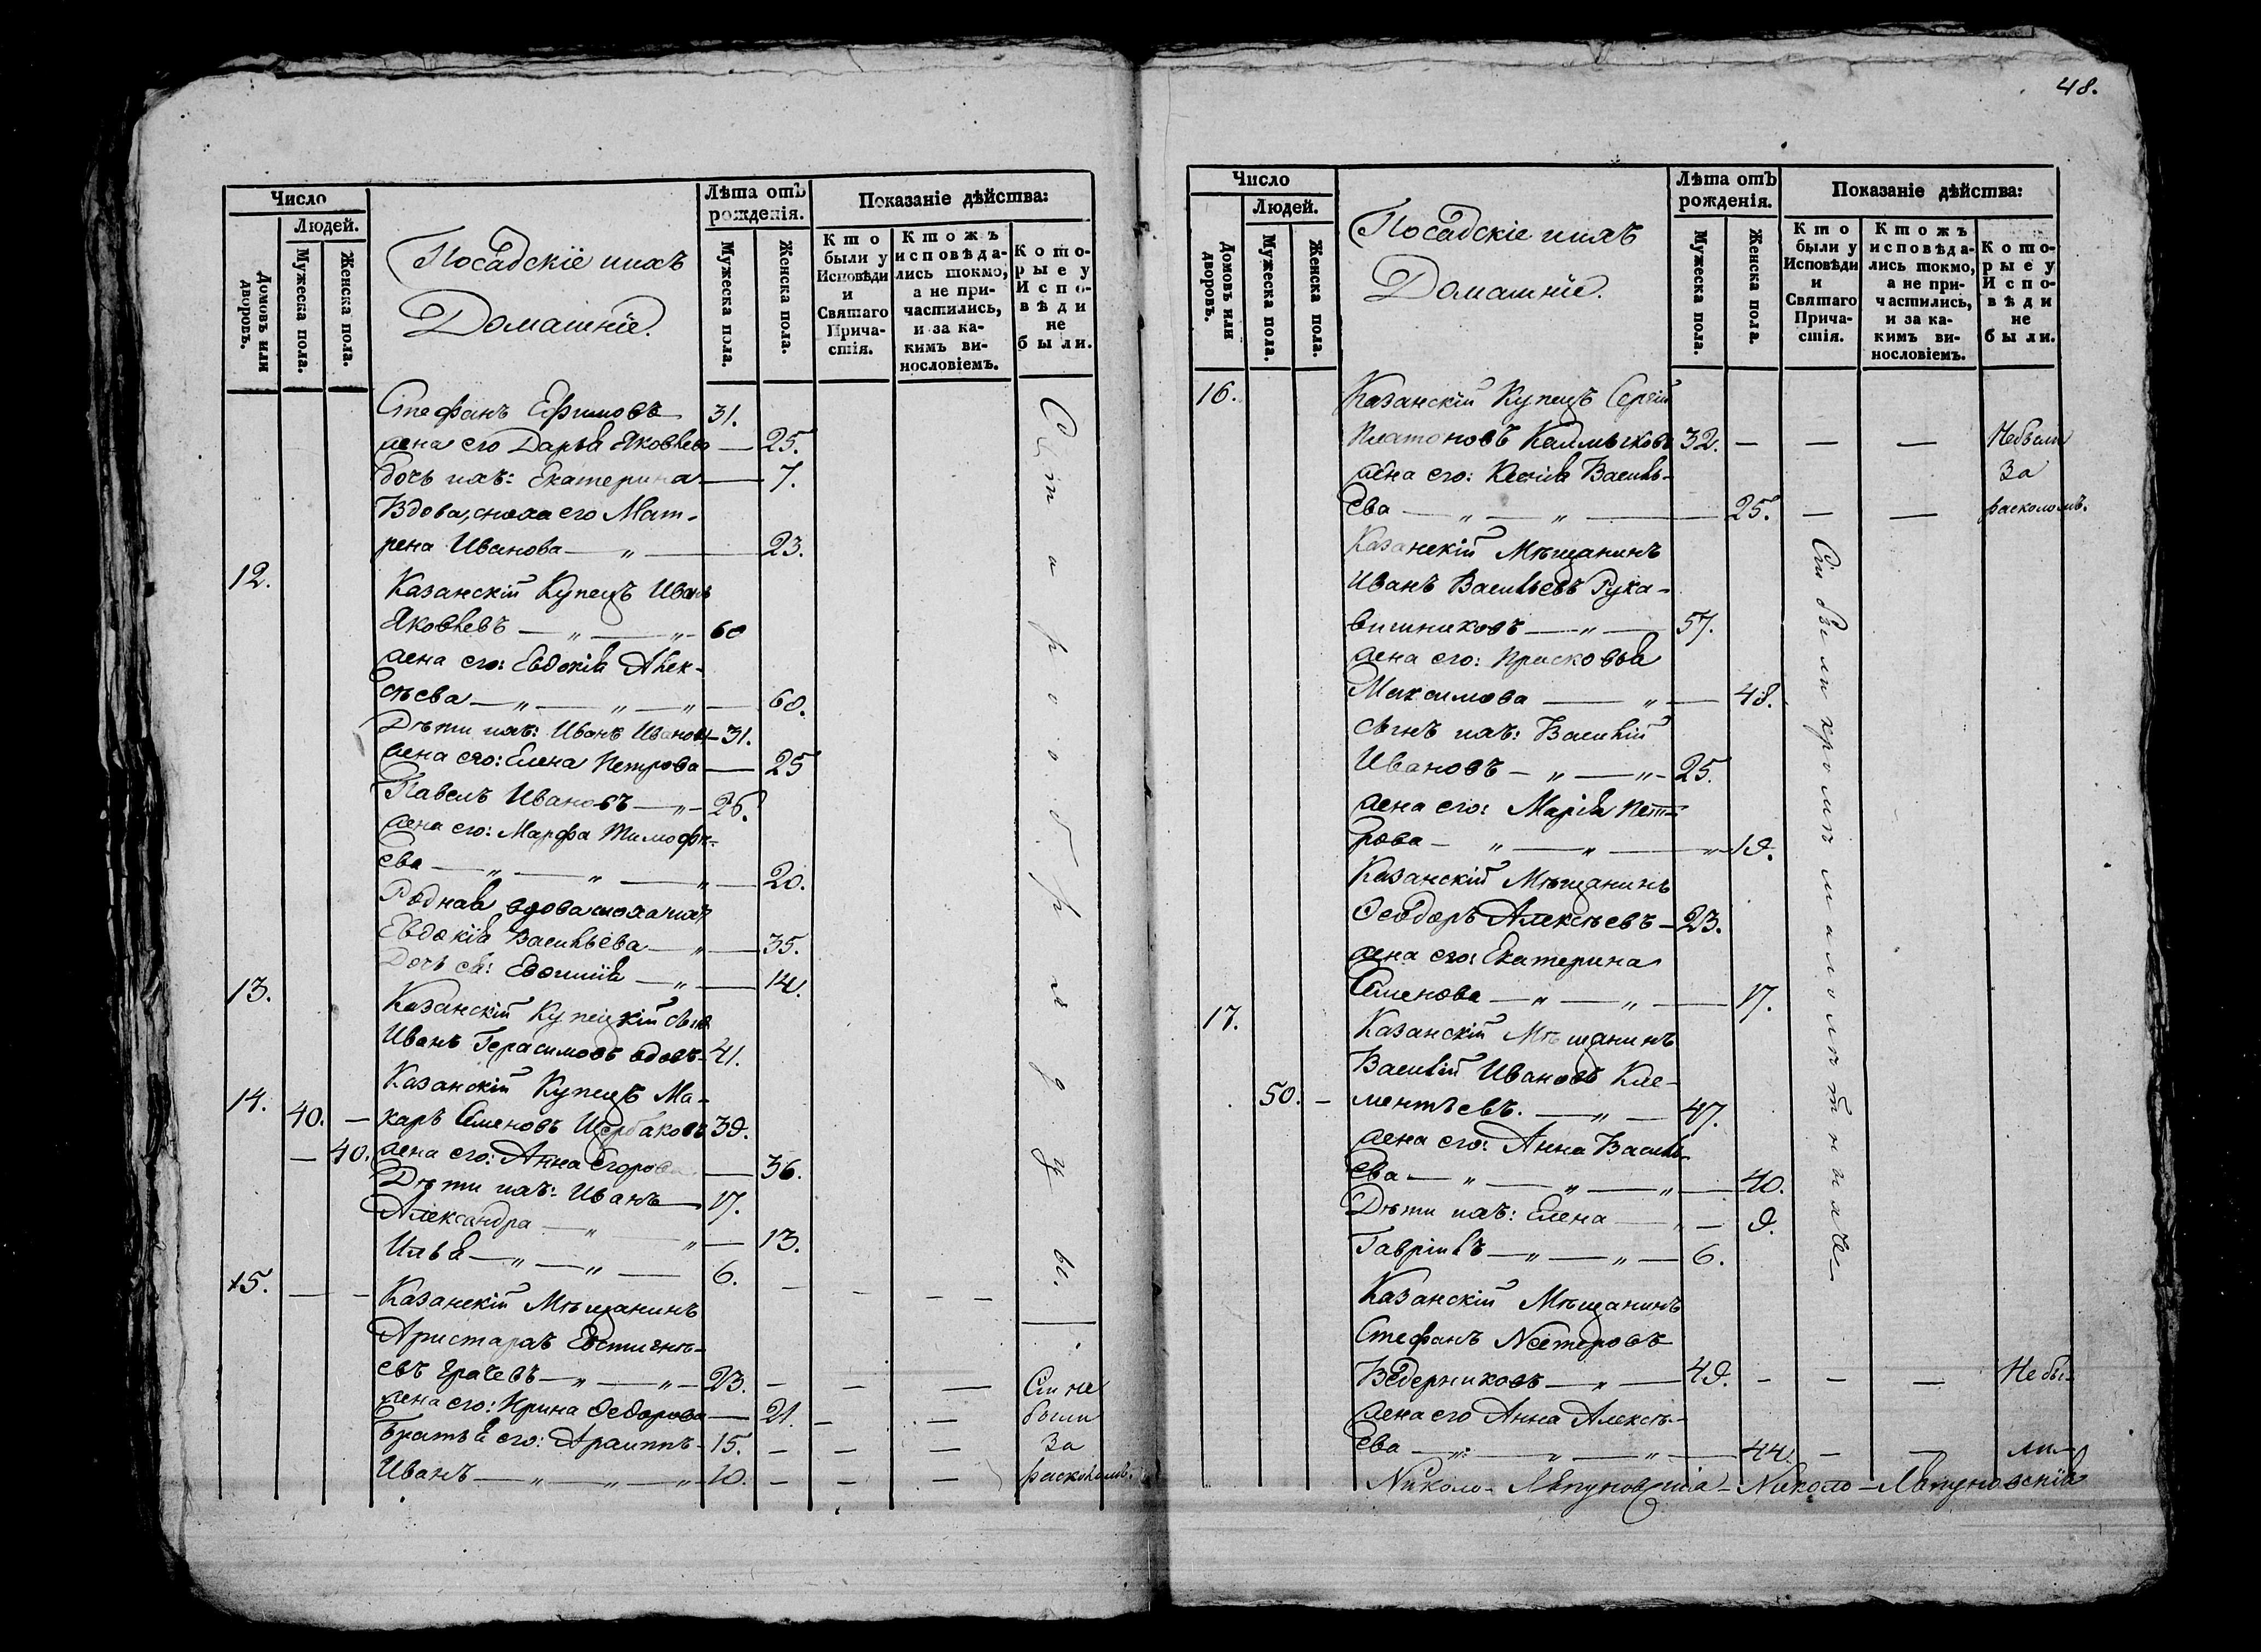 48.
Число
Людей.
Домовъ или дворовъ.
Мужеска пола.
Женска пола.
Посадскіе ихъ
Домашніе.
Лѣта отъ рожденія.
Мужеска пола.
Женска пола.
Показаніе дѣйства:
Кто были у Исповѣди и Святаго Причастія.
Ктожъ исповѣдались токмо, а не причастились, и за какимъ винословіемъ.
Которые у Исповѣди не были.
Стефанъ Ефимовъ 31.
жена его Дарья Яковлева — 25.
дочь ихъ: Екатерина — 7.
Вдова, сноха его Мат-
рена Иванова — „ — 23.
12. Казанскій Купецъ Иванъ
Яковлевъ — „ — „ — 60
жена его: Евдокія Алек-
сѣева — „ — „ — „ — 60.
Дѣти ихъ: Иванъ Ивановъ — 31.
жена его: Елена Петрова — 25
Павелъ Ивановъ — „ — 26.
жена его: Марфа Тимофѣ-
ева — „ — „ — „ — 20.
Родная вдова сноха ихъ
Евдокія Васильева — „ — 35.
Дочь ея: Евфимія — „ — 14.
13. Казанскій Купецкій сынъ
Иванъ Герасимовъ вдовъ — 41.
14. Казанскій Купецъ Ма-
40. — каръ Семеновъ Щербаковъ 39.
— 40. жена его: Анна Егорова — 36.
Дѣти ихъ: Иванъ — 17.
Александра — „ — „ — 13.
Илья — „ — „ — 6.
Старообрядцы.
15. — — Казанскій Мѣщанинъ
Аристархъ Евстигнѣ-
евъ Грачевъ — „ — „ — 23. — — — Сіи не
жена его: Ирина Ѳеодорова — 21. — — были
Братья его: — 15. — — — За
Иванъ — „ — „ — „ — 10. — — — расколомъ.
Число
Людей.
Домовъ или дворовъ.
Мужеска пола.
Женска пола.
Посадскіе ихъ
Домашніе.
Лѣта отъ рожденія.
Мужеска пола.
Женска пола.
Показаніе дѣйства:
Кто были у Исповѣди и Святаго Причастія.
Ктожъ исповѣдались токмо, а не причастились, и за какимъ винословіемъ.
Которые у Исповѣди не были.
16. Казанскій Купецъ Сергій
Платоновъ Калмыковъ 32. — — — Небыли
жена его: Ксенія Василь- За
ева — „ — „ — 25. — — расколомъ.
Казанскій Мѣщанинъ
Иванъ Васильевъ Рука-
вишниковъ — „ — 57.
жена его: Прасковья
Максимова — „ — 48.
сынъ ихъ: Василій
Ивановъ — „ — „ — 25.
жена его: Марія Пет-
рова — „ — „ — „ — 19.
Казанскій Мѣщанинъ
Ѳеодоръ Алексѣевъ — 23.
жена его: Екатерина
Семенова — „ — „ — 17.
17. Казанскій Мѣщанинъ
Василій Ивановъ Кле-
50. — ментьевъ. — „ — 47.
жена его: Анна Василь-
ева — „ — „ — „ — 40.
Дѣти ихъ: Елена — „ — 9.
Гавріилъ — „ — „ — 6.
Сіи были кромѣ малолѣтнихъ
Казанскій Мѣщанинъ
Стефанъ Нестеровъ
Ведерниковъ — „ — 49. — — — Небы-
жена его Анна Алексѣ-
ева — „ — „ — „ — 44. — — ли